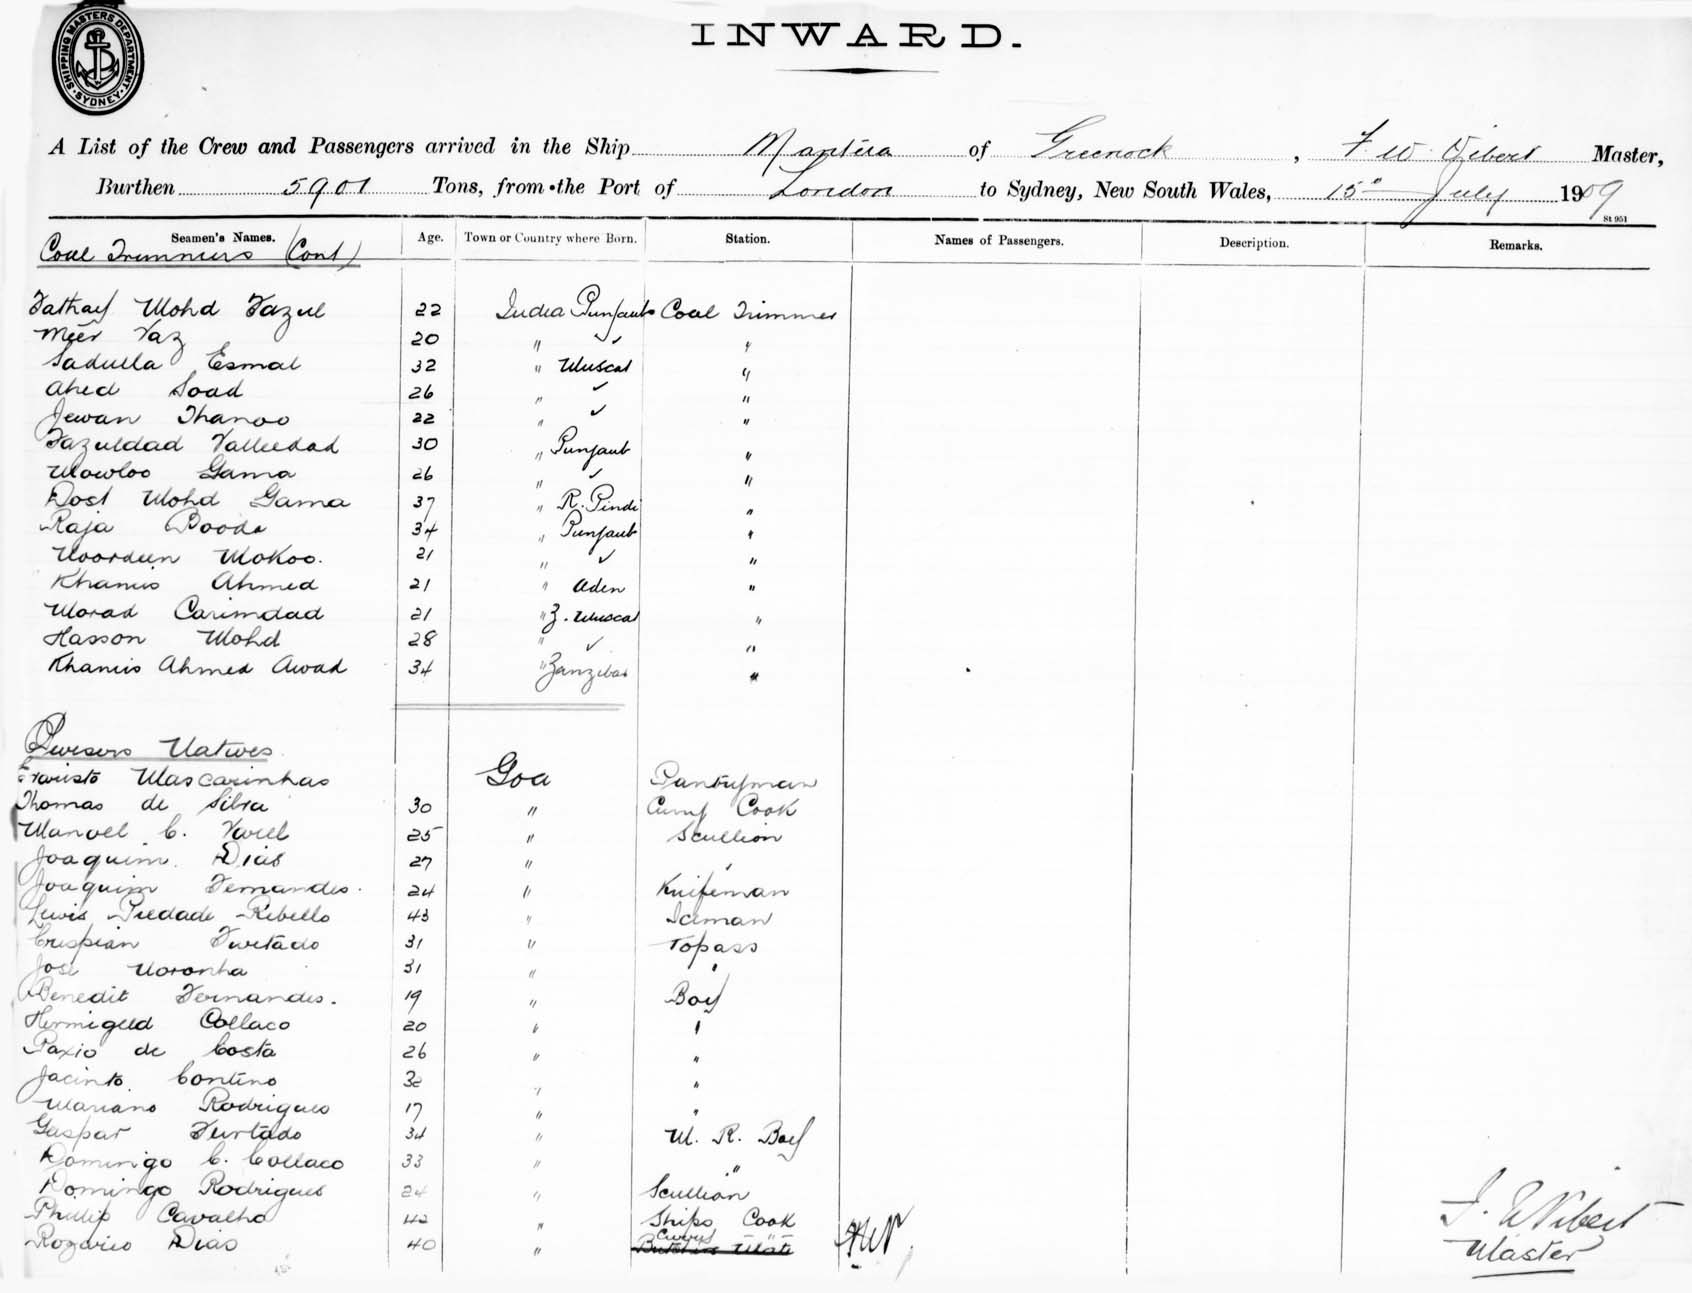 SHIPPING MASTERS DEPARTMENT. SYDNEY.
INWARD.
A List of the Crew and Passengers arrived in the Ship Mantua of Greenock, F W Vibert Master,
Burthen 5901 Tons, from the Port of London to Sydney, New South Wales, 15th July 1909
St 951
Seamen's Names. Age. Town or Country where Born. Station. Names of Passengers. Description. Remarks.
Coal Trimmers (Cont)
Mohd Fazul 22 India Punjaub Coal Trimmer
Meer Vaz 20 " ✓ "
Sadulla Esmal 32 " Muscat "
Ahed Soad 26 " ✓ "
Jewan Thanoo 22 " ✓ "
Fazuldad Valledad 30 " Punjaub "
Mowloo Gama 26 " ✓ "
Dost Mohd Gama 37 " R. Pindi "
Raja Booda 34 " Punjaub "
Noordeen Mokoo. 21 " ✓ "
Khamis Ahmed 21 " Aden "
Morad Carimdad 21 " Z. Muscat "
Hasson Mohd 28 " ✓ "
Khamis Ahmed Awad 34 " Zanzibar "
Pursers Natives
Evaristo Mascarinhas Goa Pantryman
Thomas de Silva 30 " Curry Cook
Manoel C. 25 " Scullion
Joaquim Dias 27 " "
Joaquim Fernandes. 24 " Knifeman
Lewis Piedade Rebello 43 " Iceman
Crispian Furtado 31 " Topass
José Noronha 31 " "
Benedit Fernandes. 19 " Boy
Hermigild Collaco 20 " "
Paxio de Costa 26 " "
Jacinto Contino 32 " "
Mariano Rodrigues 17 " "
Gaspar Furtado 34 " M. R. Boy
Domingo C. Collaco 33 " "
Domingo Rodrigues 24 " Scullion
Philip Cavalho 42 " Ships Cook
Rozario Dias 40 " Curry "
Butchers Mate
F. W Vibert
Master